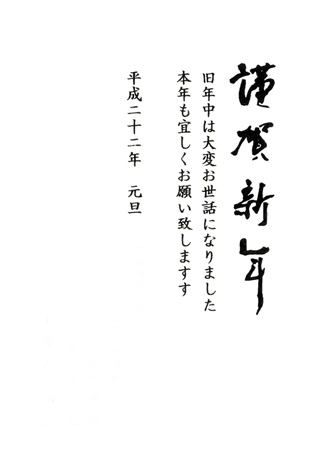 謹賀新年
旧年中は大変お世話になりました
本年も宜しくお願い致しますす
平成二十二年 元旦